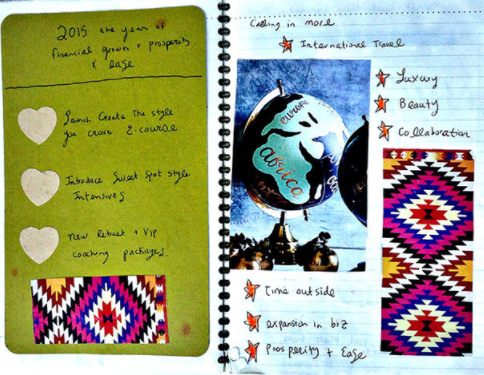 2015 the year of
financial growth + prosperity
& ease
Launch Create The style
you crave E-course
Introduce Sweet Spot style
Intensives
New Retreat + VIP
coaching packages.
Calling in more
International Travel
Luxury
Beauty
Collaboration
europe
africa
Time outside
expansion in biz
Prosperity + Ease